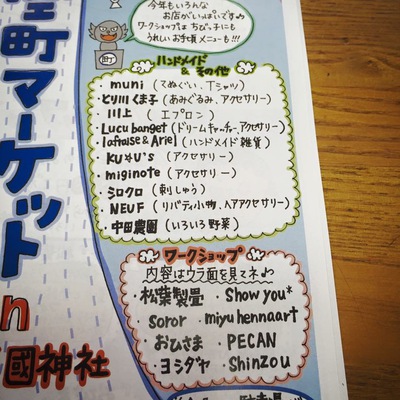 今年もいろんな
お店がいっぱいです♪
ワークショップは ちびっ子にも
うれしいお手頃メニューも!!!
町
町マーケット
in
國神社
ハンドメイド
& その他
・muni (てぬぐい、Tシャツ)
・とり川くま子 (あみぐるみ、アクセサリー)
・川上 (エプロン)
・Lucu banget (ドリームキャッチャー、アクセサリー)
・lafraise & Ariel (ハンドメイド雑貨)
・KU☆U's (アクセサリー)
・miginote (アクセサリー)
・シロクロ (刺しゅう)
・NEUF (リバティ小物、ヘアアクセサリー)
・中田農園 (いろいろ野菜)
ワークショップ
内容はウラ面を見てネ♪
・松葉製畳 ・Show you*
・Soror ・miyu hennaart
・おひさま ・PECAN
・ヨシダヤ ・Shinzou